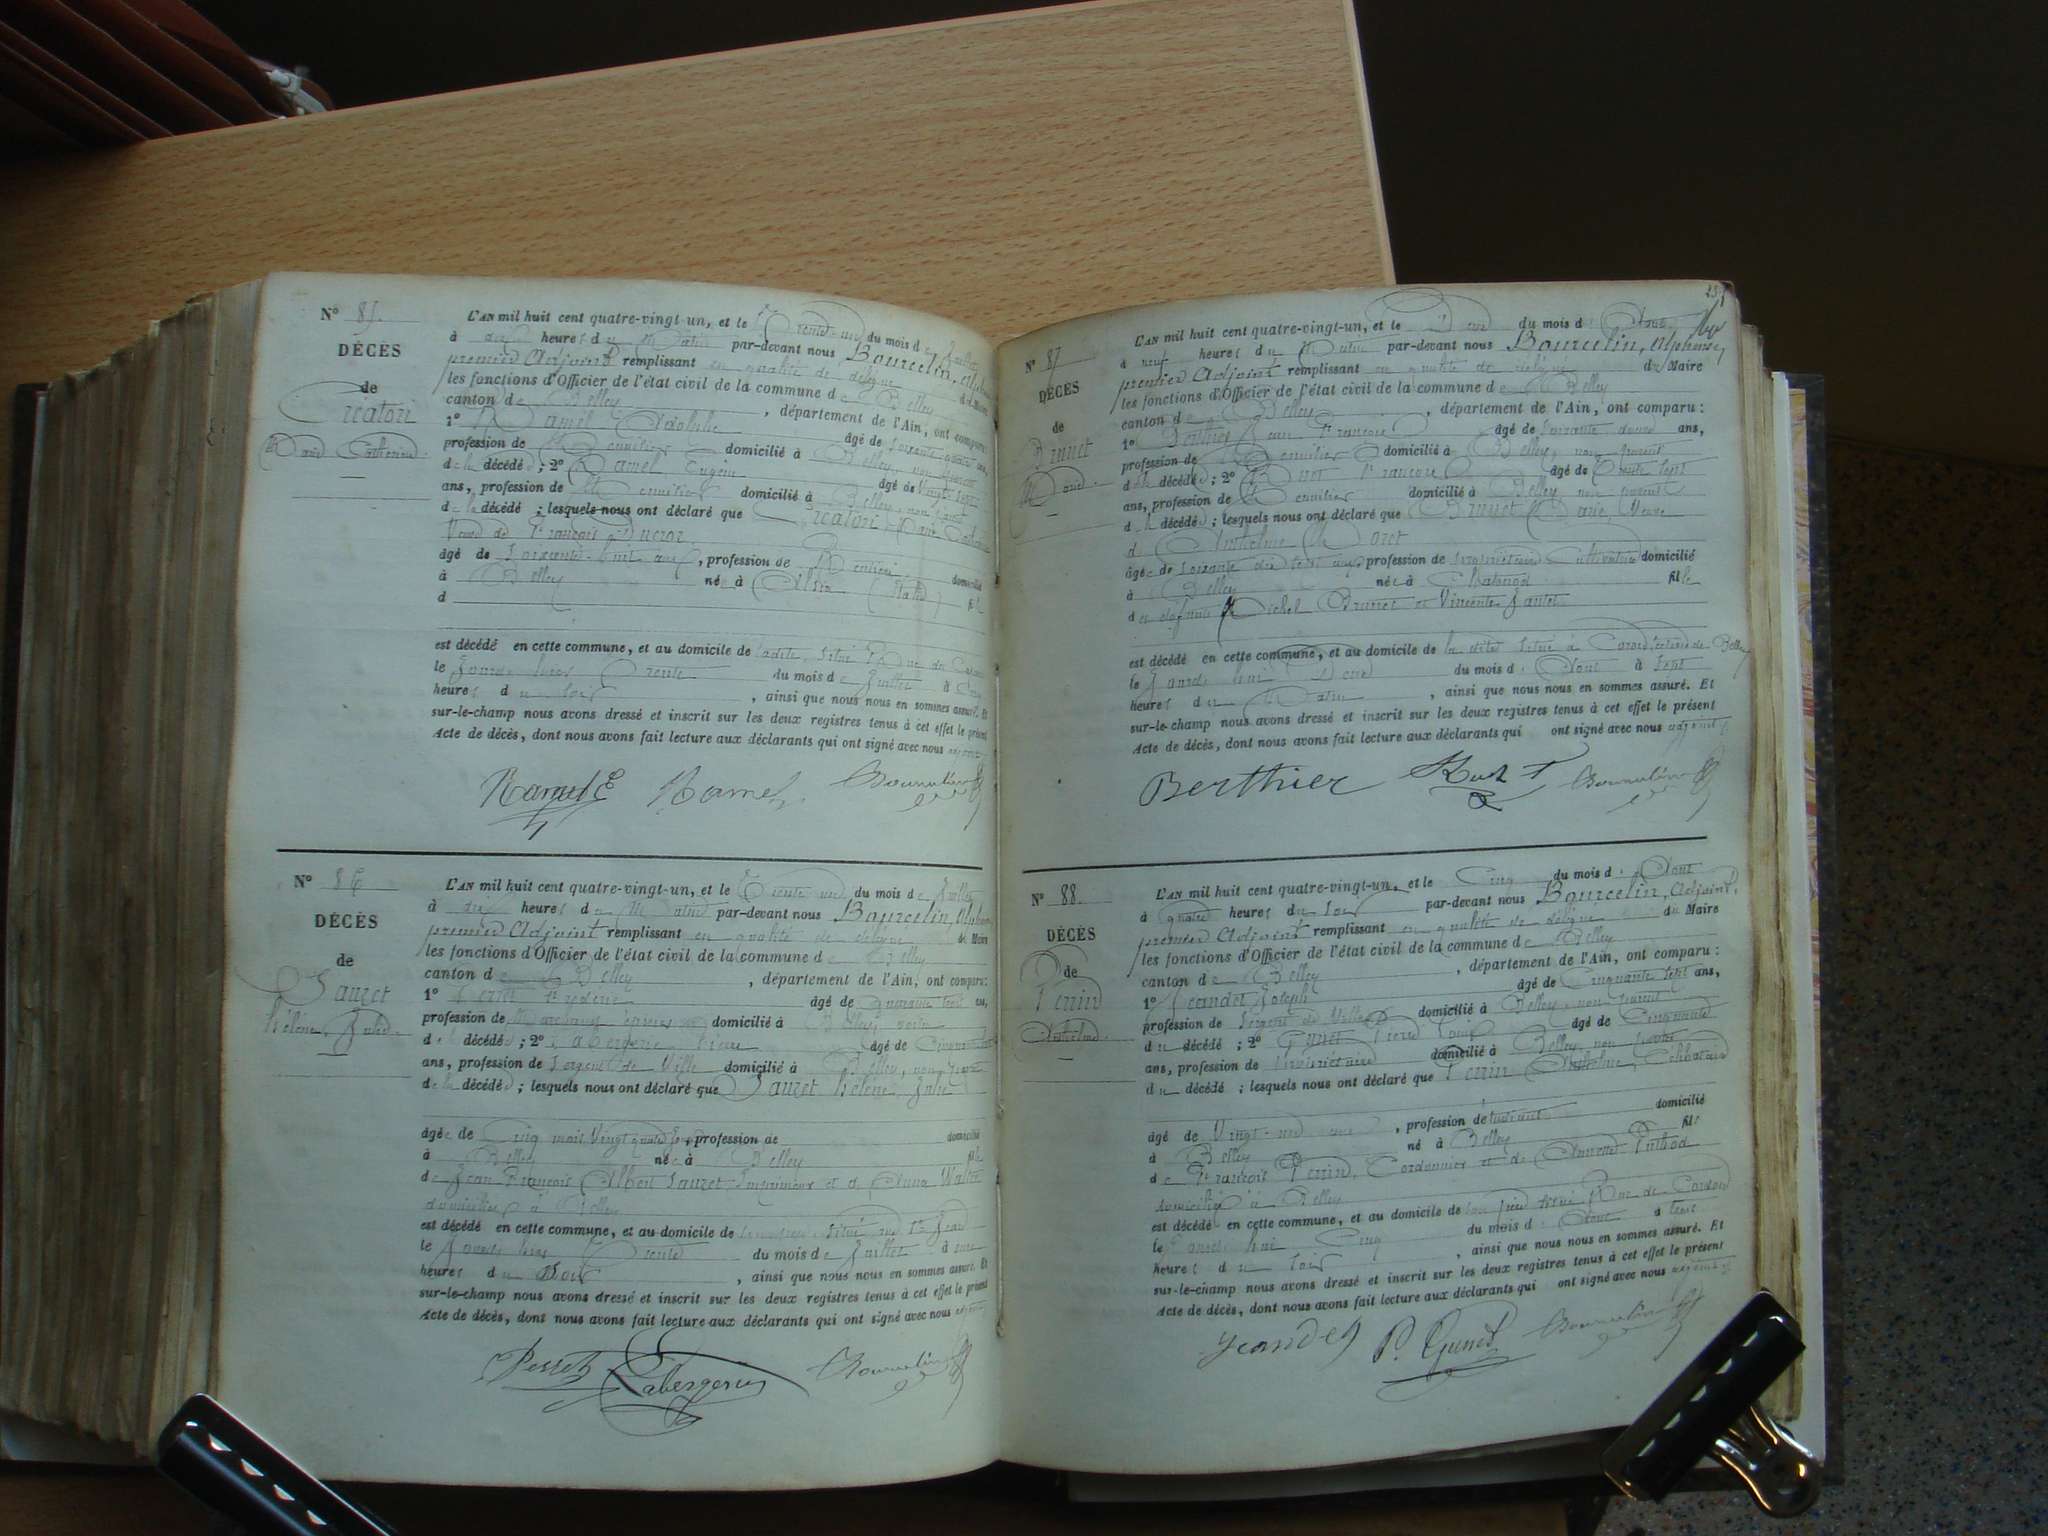 N° 85.
DÉCÈS
de
Creatori
Marie Catherine.
L'AN mil huit cent quatre-vingt-un, et le Trente-un du mois de Juillet
à dix heures du Matin par-devant nous Bourcelin,
premier Adjoint remplissant en qualité de délégué du Maire
les fonctions d'Officier de l'état civil de la commune de Belley
canton de Belley, département de l'Ain, ont comparu:
1° Ramel Adolphe âgé de ans,
profession de Menuisier domicilié à Belley, non parent
de la décédée; 2° Ramel Eugène âgé de Vingt sept
ans, profession de Menuisier domicilié à Belley, non parent
de la décédée; lesquels nous ont déclaré que Creatori Marie Catherine
Veuve de François Ducroz
âgée de Soixante-huit ans, profession de Rentière domicilié
à Belley née à (Italie) fille
d
est décédé en cette commune, et au domicile de ladite, situé Rue des
le Jour d'hier Trente du mois de Juillet à
heures du soir, ainsi que nous nous en sommes assuré. Et
sur-le-champ nous avons dressé et inscrit sur les deux registres tenus à cet effet le présent
Acte de décès, dont nous avons fait lecture aux déclarants qui ont signé avec nous
Ramel E Ramel Bourcelin
N° 86
DÉCÈS
de
Sauzet
Hélène, Julie.
L'AN mil huit cent quatre-vingt-un, et le Trente un du mois de Juillet
à dix heures du Matin par-devant nous Bourcelin,
premier Adjoint remplissant en qualité de délégué du Maire
les fonctions d'Officier de l'état civil de la commune de Belley
canton de Belley, département de l'Ain, ont comparu:
1° Frédéric âgé de Quarante trois ans,
profession de Marchand domicilié à Belley voisin
d décédé; 2° Labergerie Pierre âgé de
ans, profession de Sergent de Ville domicilié à Belley, non parent
de la décédée; lesquels nous ont déclaré que Sauzet Hélène, Julie
âgée de Cinq mois Vingt quatre jours, profession de domicilié
à Belley née à Belley fille
de Jean François Albert Sauzet, Imprimeur et de Anna
domiciliés à Belley
est décédé en cette commune, et au domicile de son père, situé rue St Jean
le Jour d'hier Trente du mois de Juillet à
heures du Soir, ainsi que nous nous en sommes assuré. Et
sur-le-champ nous avons dressé et inscrit sur les deux registres tenus à cet effet le présent
Acte de décès, dont nous avons fait lecture aux déclarants qui ont signé avec nous
Labergerie Bourcelin
N° 87
DÉCÈS
de
Brunet
Marie.
L'AN mil huit cent quatre-vingt-un, et le Deux du mois d'Aout
à neuf heures du Matin par-devant nous Bourcelin, Alphonse,
premier Adjoint remplissant en qualité de délégué du Maire
les fonctions d'Officier de l'état civil de la commune de Belley
canton de Belley, département de l'Ain, ont comparu:
1° Berthier Jean François âgé de Soixante deux ans,
profession de Menuisier domicilié à Belley, non parent
de la décédée; 2° François âgé de Trente sept
ans, profession de Menuisier domicilié à Belley non parent
de la décédée; lesquels nous ont déclaré que Brunet Marie, Veuve
d Anthelme
âgée de Soixante dix sept ans, profession de propriétaire Cultivateur domicilié
à Belley née à Chatonod fille
des défunts Michel Brunet et Vincente
est décédé en cette commune, et au domicile de la dite situé à Coron, section de Belley
le Jourd'hui Deux du mois d'Aout à Sept
heures du Matin, ainsi que nous nous en sommes assuré. Et
sur-le-champ nous avons dressé et inscrit sur les deux registres tenus à cet effet le présent
Acte de décès, dont nous avons fait lecture aux déclarants qui ont signé avec nous adjoint
Berthier Bourcelin
N° 88.
DÉCÈS
de
Perrin
Anthelme.
L'AN mil huit cent quatre-vingt-un, et le Cinq du mois d'Aout
à quatre heures du Soir par-devant nous Bourcelin, Adjoint,
premier Adjoint remplissant en qualité de délégué du Maire
les fonctions d'Officier de l'état civil de la commune de Belley
canton de Belley, département de l'Ain, ont comparu:
1° Jeandet Joseph âgé de Cinquante sept ans,
profession de Sergent de Ville domicilié à Belley, non parent
du décédé; 2° Pierre Louis âgé de Cinquante
ans, profession de propriétaire domicilié à Belley non parent
du décédé; lesquels nous ont déclaré que Perrin Anthelme, Célibataire
âgé de Vingt-, profession de étudiant domicilié
à Belley né à Belley fils
de François Perrin, Cordonnier et de Annette Puthod
domiciliés à Belley
est décédé en cette commune, et au domicile de son père situé Rue de Cordon
le Jourd'hui Cinq du mois d'Aout à trois
heures du Soir, ainsi que nous nous en sommes assuré. Et
sur-le-champ nous avons dressé et inscrit sur les deux registres tenus à cet effet le présent
Acte de décès, dont nous avons fait lecture aux déclarants qui ont signé avec nous adjoint
Jeandet P. Bourcelin